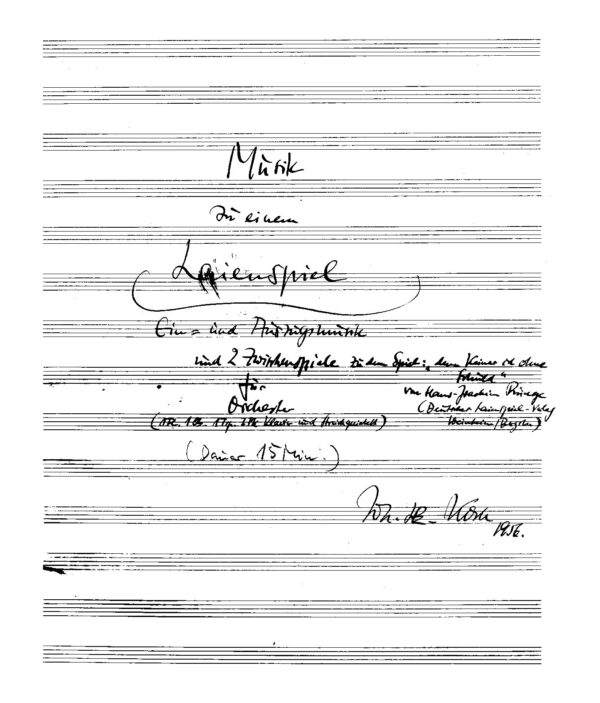 Musik
zu einem
Laienspiel
Ein= und Auszugsmusik
und 2 Zwischenspiele zu dem Spiel: "denn Keiner ist ohne
Schuld"
für
von Hans-Joachim
Orchester
(Deutscher Laienspiel-Verlag
(1 Fl. 1 Ob. 1 Trp. 2 Hr. Klavier und Streichquintett)
Weinheim/Bergstr.)
(Dauer 15 Min.)
1956.